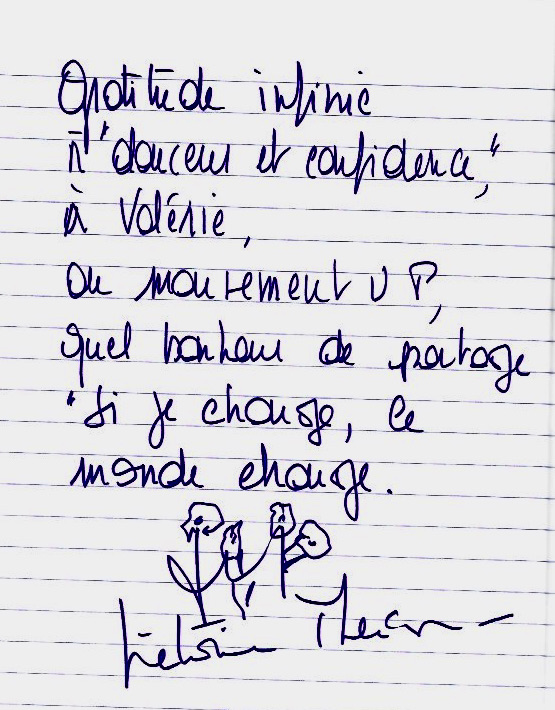 Gratitude infinie
à "douceur et confidence,"
à Valérie,
au mouvement UP,
quel bonheur de partage
"Si je change, le
monde change.